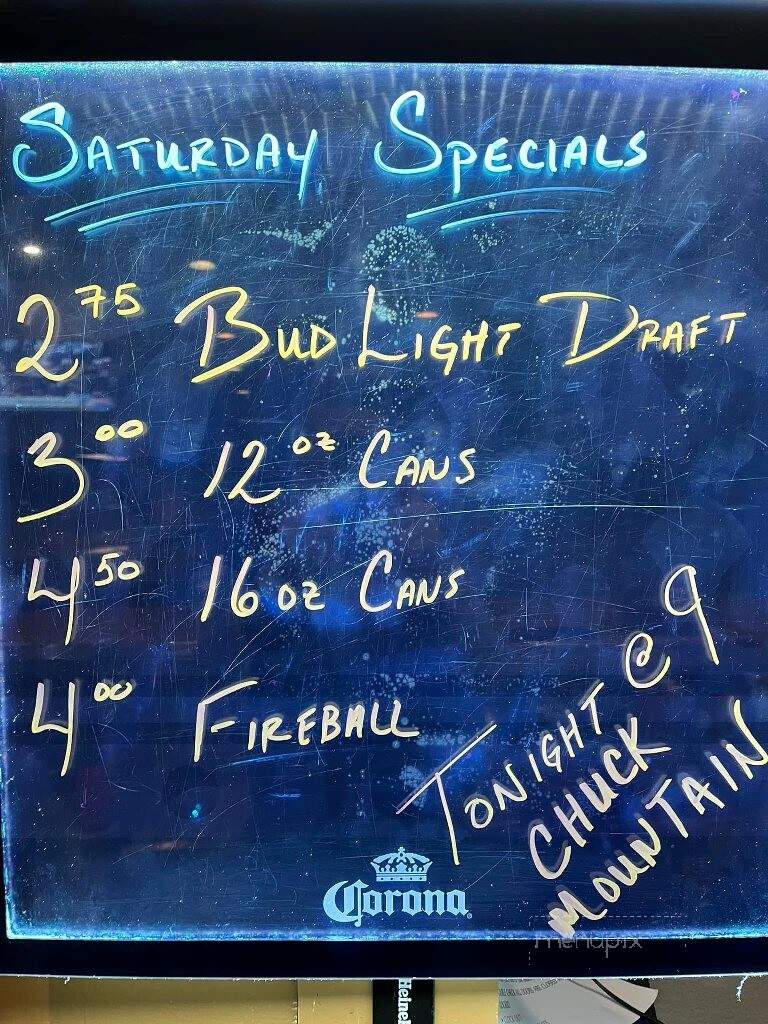 SATURDAY SPECIALS
2 75 BUD LIGHT DRAFT
3 00 12 oz CANS
4 50 16 oz CANS
4 00 FIREBALL
TONIGHT @ 9
CHUCK
MOUNTAIN
Corona
menupix